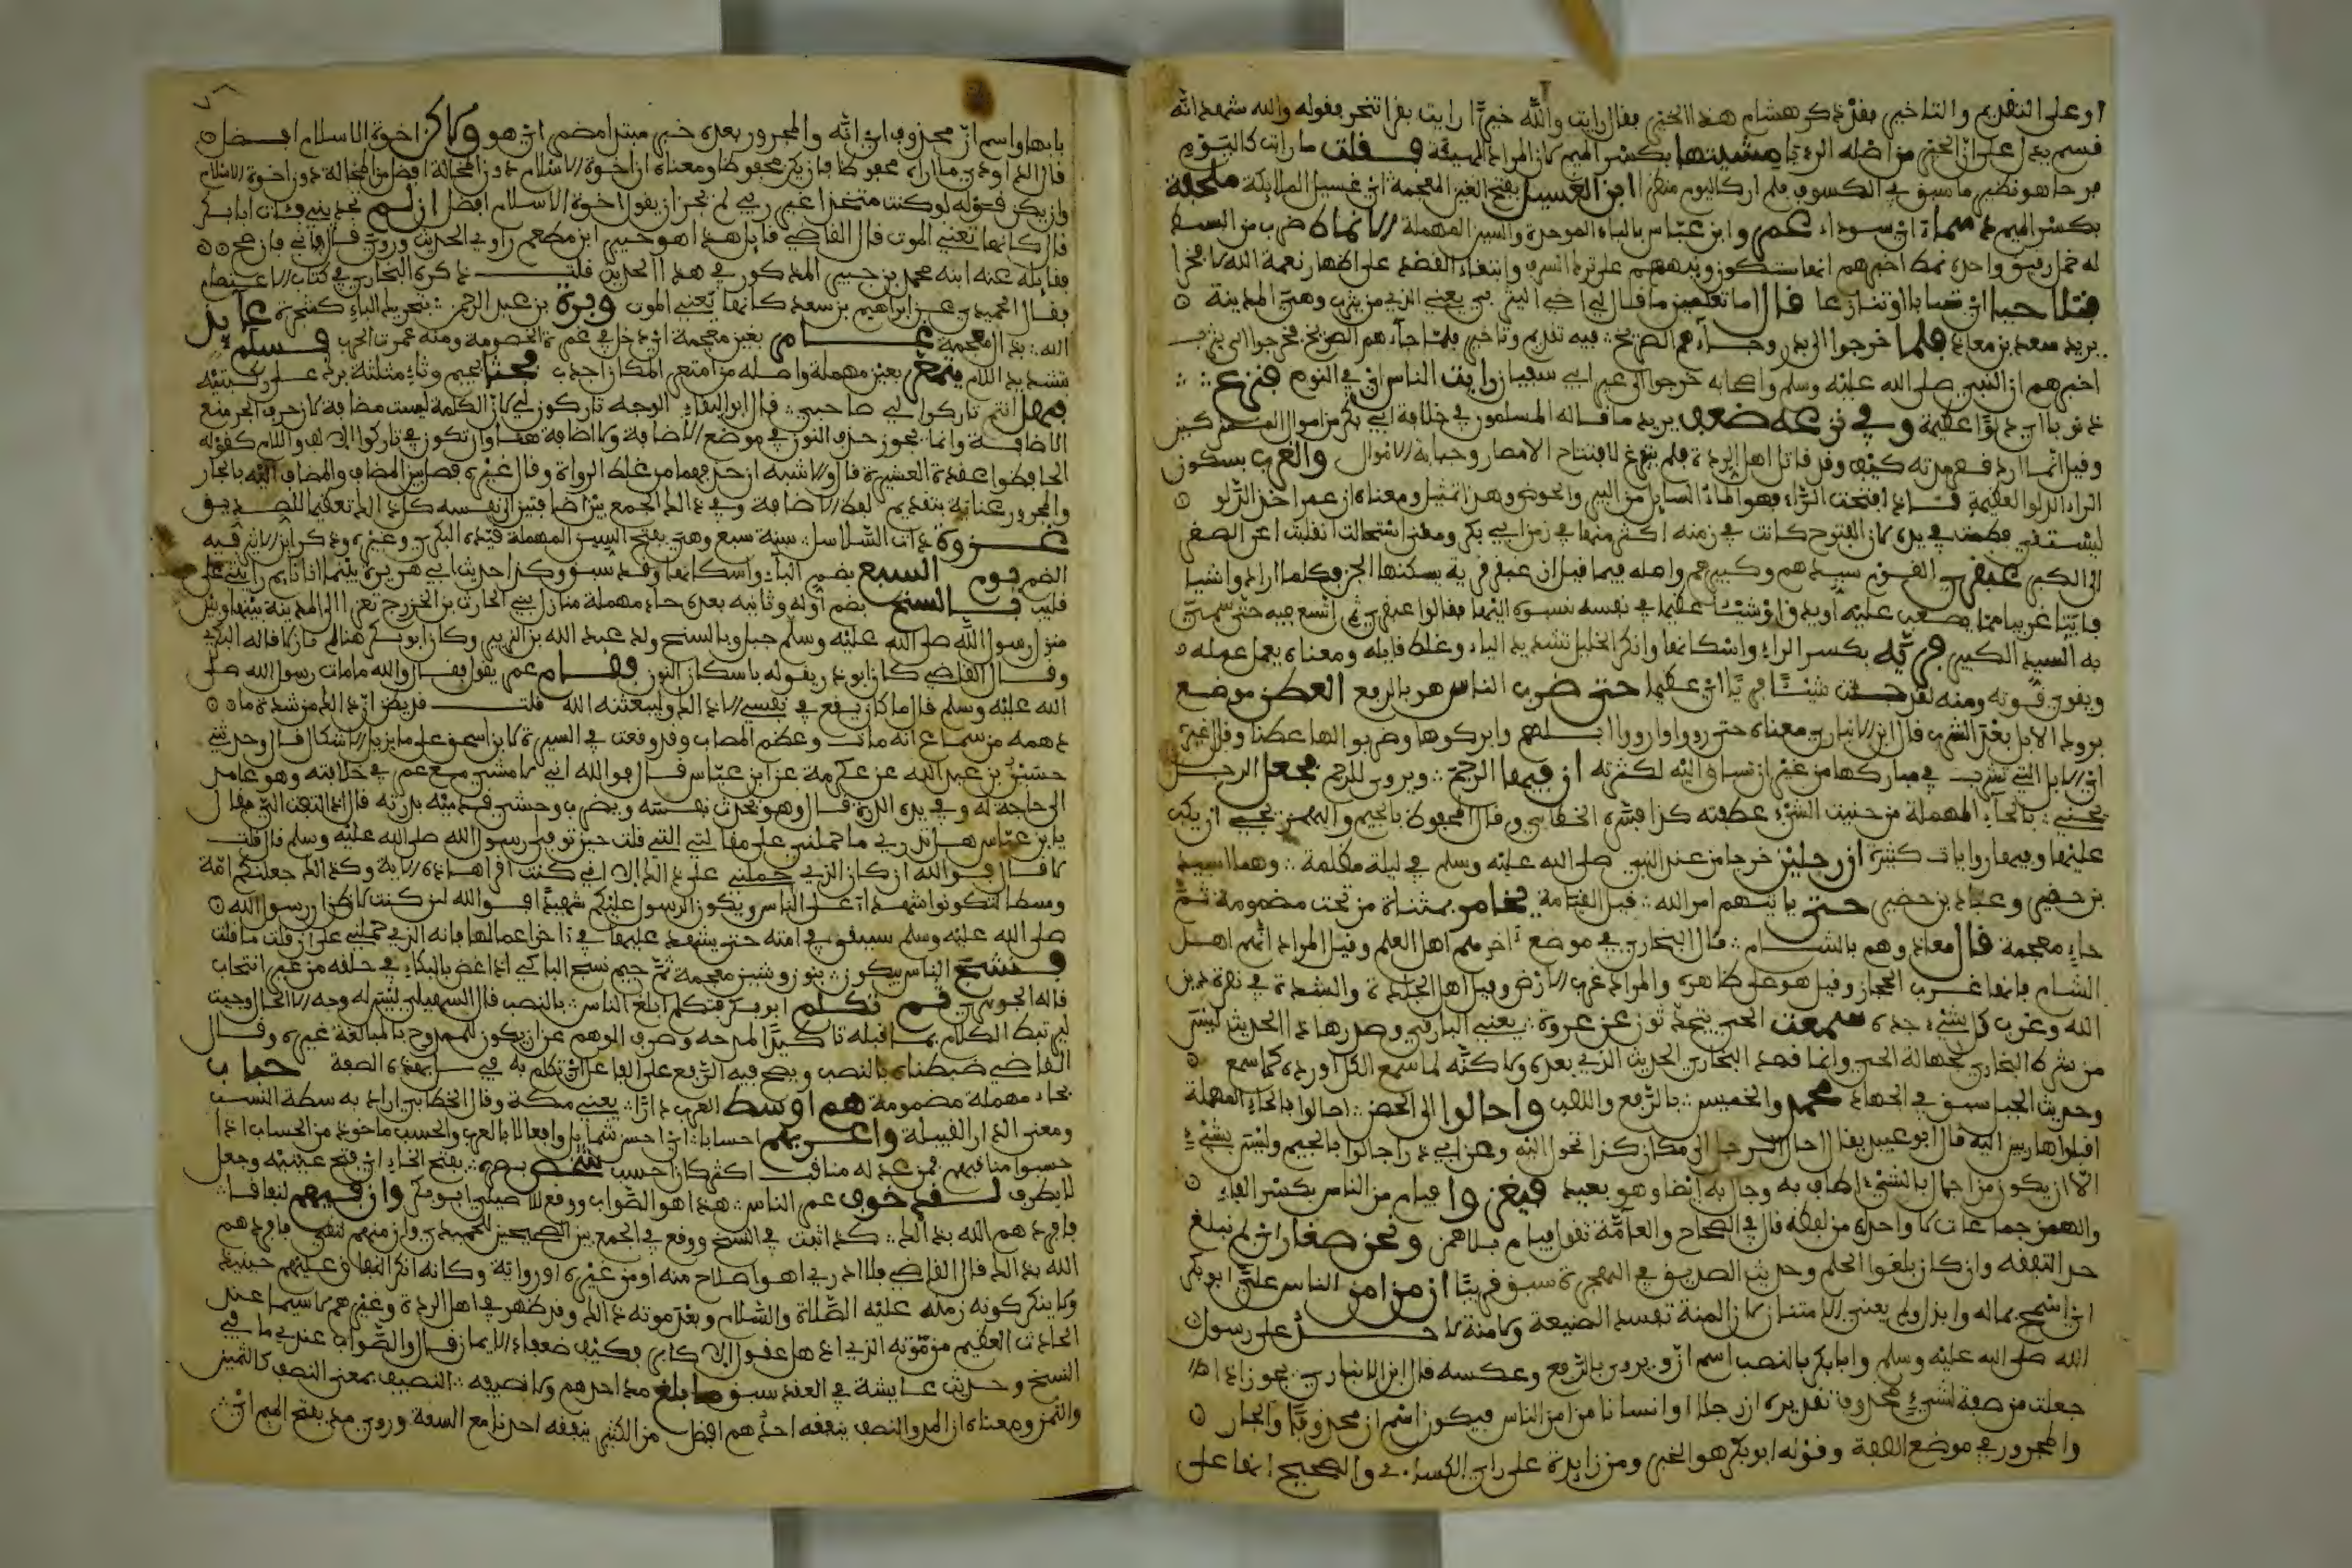 او على التقديم والتاخير فقد ذكر هشام هذا الخبر فقال رايت والله خيرا رايت بقرا تنحر فقوله والله
فسم يدل على ان الخبر من اصله الرؤيا مشيتها بكسر الميم كان المراد الهيئة فقلت ما رايت كاليوم
فرحا هو نظير ما سبق في الكسوف فلم ار كاليوم منظرا ابن الغسيل بفتح الغين المعجمة اي غسيل الملايكة ملحفة
بكسر الميم دسماء اي سوداء عمرو ابن عباس بالباء الموحدة والسين المهملة الانماط ضرب من البسط
له خمل رقيق واحده نمط
فتلاحيا اي تسابا او تنازعا قال اما تعلمين ما قال لي اخي اليثربي يعني الذي من يثرب وهي المدينة
يريد سعد بن معاذ فلما خرجوا الى بدر وجاءهم الصريخ فيه تقديم وتاخير فلما جاءهم الصريخ خرجوا الى بدر
اخبرهم ان النبي صلى الله عليه وسلم واصحابه خرجوا الى عير ابي سفيان رايت الناس اي في النوم فنزع
ذنوبا اي دلوا عظيمة وفي نزعه ضعف يريد ما ناله المسلمون في خلافة ابي بكر من اموال المشركين
وقيل انما اراد قصر مدته كيف وقد قاتل اهل الردة فلم يتفرغ لافتتاح الامصار وجباية الاموال والغرب بسكون
الراء الدلو العظيمة فاذا فتحت الراء فهو الماء السايل من البير والحوض وهذا تمثيل ومعناه ان عمر اخذ الدلو
ليستقي فعظمت في يده كان الفتوح كانت في زمنه اكثر منها في زمن ابي بكر ومعنى استحالت انقلبت عن الصغر
الى الكبر عبقري القوم سيدهم وكبيرهم واصله فيما قيل ان عبقر قرية يسكنها الجن فكلما راوا شيا
فايقا غريبا مما يصعب عمله او يدق او شيئا عظيما في نفسه نسبوه اليها فقالوا عبقري ثم اتسع فيه حتى سمي
به السيد الكبير فريه بكسر الراء واسكانها وانكر الخليل تشديد الياء وغلط قايله ومعناه يعمل عمله
ويقوى قوته ومنه لقد جئت شيئا فريا اي عظيما حتى ضرب الناس هو بالرفع العطن موضع
بروك الابل بعد الشرب قال ابن الانباري معناه حتى رووا وارووا ابلهم وابركوها وضربوا لها عطنا وقال غيره
علينا وفيها روايات كثيرة ان رجلين خرجا من عند النبي صلى الله عليه وسلم في ليلة مظلمة وهما اسيد
بن حضير وعباد بن حتى ياتيهم امر الله قيل القيامة يخامر بمثناة من تحت مضمومة ثم
خاء معجمة قال معاذ وهم بالشام قال البخاري في موضع اخر هم اهل العلم وقيل المراد انهم اهل
الشام فانها غرب الحجاز وقيل هو على ظاهره والمراد غرب الارض وقيل اهل الجلادة والشدة في نصرة دين
الله وغرب كل شيء حده سمعت الحي يتحدثون عن عروة يعني البارقي
من شرط البخاري لجهالة الحي وانما قصد البخاري الحديث الذي بعده ولكنه لما سمع الكل اورده كما سمع
وحديث الخيل سبق في الجهاد محمد والخميس بالرفع والنصب واحالوا الى الحصن احالوا بالحاء المهملة
اقبلوا هاربين اليه قال ابو عبيد يقال احال الرجل الى مكان كذا تحول اليه وعن ابي ذر اجالوا بالجيم وليس بشيء
الا ان يكون من اجال بالشيء اطاف به وجال به ايضا وهو بعيد فيغزوا فيام من الناس بكسر الفاء
والهمز جماعات لا واحد له من لفظه قال في الصحاح والعامة تقول فيام بلا همز ونحن صغار اي لم نبلغ
حد التفقه وان كان بلغوا الحلم وحديث الصديق في الهجرة سبق قريبا ان من امن الناس علي ابو بكر
اي اسمح بماله وابذل ولم يعني الامتنان لان المنة تفسد الصنيعة ولا منة لاحد على رسول
الله صلى الله عليه وسلم وابا بكر بالنصب اسم ان ويروى بالرفع وعكسه قال ابن الانباري يجوز اذا
جعلت من صفة لشيء محذوف تقديره ان رجلا او انسانا من امن الناس فيكون اسم ان محذوفا والجار
والمجرور في موضع الصفة وقوله ابو بكر هو الخبر ومن زايدة على راي الكسائي والصحيح انها على
بابها واسم ان محذوف اي انه والمجرور بعده خبر مبتدا مضمر اي هو ولكن اخوة الاسلام افضل
قال الداودي ما اراه محفوظا فان يكن محفوظا ومعناه ان اخوة الاسلام دون المخالة افضل من المخالة دون اخوة الاسلام
وان يكن قوله لو كنت متخذا غير ربي لم يجز ان يقول اخوة الاسلام افضل ان لم تجديني فات ابا بكر
قال كانها تعني الموت قال القاضي قايل هذا هو جبير ابن مطعم راوي الحديث
فقايله عنه ابنه محمد بن جبير المذكور في هذا الحديث قلت ذكره البخاري في كتاب الاعتصام
فقال الحميدي عن ابراهيم بن سعد كانها تعني الموت وبرة بن عبد الرحمن بتحريك الباء كشجرة عايذ
الله بذال معجمة غامر بغين معجمة اي دخل في غمرة الخصومة ومنه غمرات الحرب فسلم
بتشديد اللام يتمعر بعين مهملة واصله من امتعر المكان اجدب فجثا بجيم وثاء مثلثة برك على ركبتيه
فهل انتم تاركوا لي صاحبي قال ابو البقاء الوجه تاركون لي لان الكلمة ليست مضافة لان حرف الجر منع
الاضافة وانما يجوز حذف النون في موضع الاضافة ولا اضافة هنا
الحافظوا عورة العشيرة قال والاشبه ان حذفها من غلط الرواة وقال غيره فصل بين المضاف والمضاف اليه بالجار
والمجرور عناية بتقديم لفظ الاضافة وفي ذلك الجمع بين اضافتين الى نفسه كل ذلك تعظيما للصديق
غزوة ذات السلاسل سنة سبع وهي بفتح السين المهملة قيده البكري وغيره وذكر ابن الاثير فيه
الضم يوم السبع بضم الباء واسكانها وقد سبق وكذا حديث ابي هريرة بينما انا نايم رايتني على
قليب بالسنح بضم اوله وثانيه بعده حاء مهملة منازل بني الحارث بن الخزرج
منزل رسول الله صلى الله عليه وسلم ميل وبالسنح ولد عبد الله بن الزبير وكان ابو بكر هنالك نازلا قاله البكري
وقال القاضي كان ابو ذر يقوله باسكان النون فقام عمر يقول فقال والله ما مات رسول الله صلى
الله عليه وسلم قال ما كان يقع في نفسي الا ذلك وليبعثنه الله قلت قد يظن ان ذلك من شدة ما
دهمه من سماع انه مات وعظم المصاب وقد وقعت في السيرة لابن اسحق على ما يزيل الاشكال قال وحدثني
حسين بن عبد الله عن عكرمة عن ابن عباس قال والله اني لامشي مع عمر في خلافته وهو عامد
الى حاجة له وفي يده الدرة قال وهو يحدث نفسه ويضرب وحشي قدميه بدرته قال اذ التفت الي فقال
يا ابن عباس هل تدري ما حملني على مقالتي التي قلت حين توفي رسول الله صلى الله عليه وسلم قال قلت
لا قال فوالله ان كان الذي حملني على ذلك الا اني كنت اقرا هذه الاية وكذلك جعلنكم امة
وسطا لتكونوا شهداء على الناس ويكون الرسول عليكم شهيدا فوالله ان كنت لاظن ان رسول الله
صلى الله عليه وسلم سيبقى في امته حتى يشهد عليها في اخر اعمالها فانه الذي حملني على ان قلت ما قلت
فنشج الناس يبكون بنون وشين معجمة ثم جيم نشج الباكي اذا غص بالبكاء في حلقه من غير انتحاب
قاله الجوهري ثم تكلم ابو بكر فتكلم ابلغ الناس بالنصب قال السهيلي
ليرتبط الكلام بما قبله تاكيدا لمدحه وصرف الوهم عن ان يكون الممدوح بالمبالغة غيره وقال
القاضي ضبطناه بالنصب ويصح فيه الرفع على الفاعل اي تكلم به بهذه الصفة حباب
بحاء مهملة مضمومة هم اوسط العرب دارا يعني مكة وقال الخطابي اراد به سطة النسب
ومعنى الدار القبيلة واعربهم احسابا اي احسن شمايل وافعالا بالعرب والحسب ماخوذ من الحساب اذا
حسبوا مناقبهم فمن عد له مناقب اكثر كان احسب شخص بصره بفتح الخاء اي فتح عينيه وجعل
لا يطرف لقد خوف عمر الناس هذا هو الصواب ووقع للاصيلي ابو بكر وان فيهم لنفاقا
فردهم الله بذلك كذا ثبت في النسخ ووقع في الجمع بين الصحيحين للحميدي وان منهم لتقى فردهم
الله بذلك قال القاضي فلا ادري اهو اصلاح منه او من غيره او رواية وكانه انكر النفاق عليهم حينئذ
ولا ينكر كونه زمنه عليه الصلاة والسلام وبعد موته ذلك وقد ظهر في اهل الردة وغيرهم لاسيما عند
الحادث العظيم من موته الذي اذهل عقول الاكابر فكيف ضعفاء الايمان قال والصواب عندي ما في
النسخ وحديث عايشة في العقد سبق ما بلغ مد احدهم ولا نصيفه النصيف بمعنى النصف كالثمين
والثمن ومعناه ان المد والنصف ينفقه احدهم افضل من الكثير ينفقه احدنا مع السعة وروي مد بفتح الميم اي